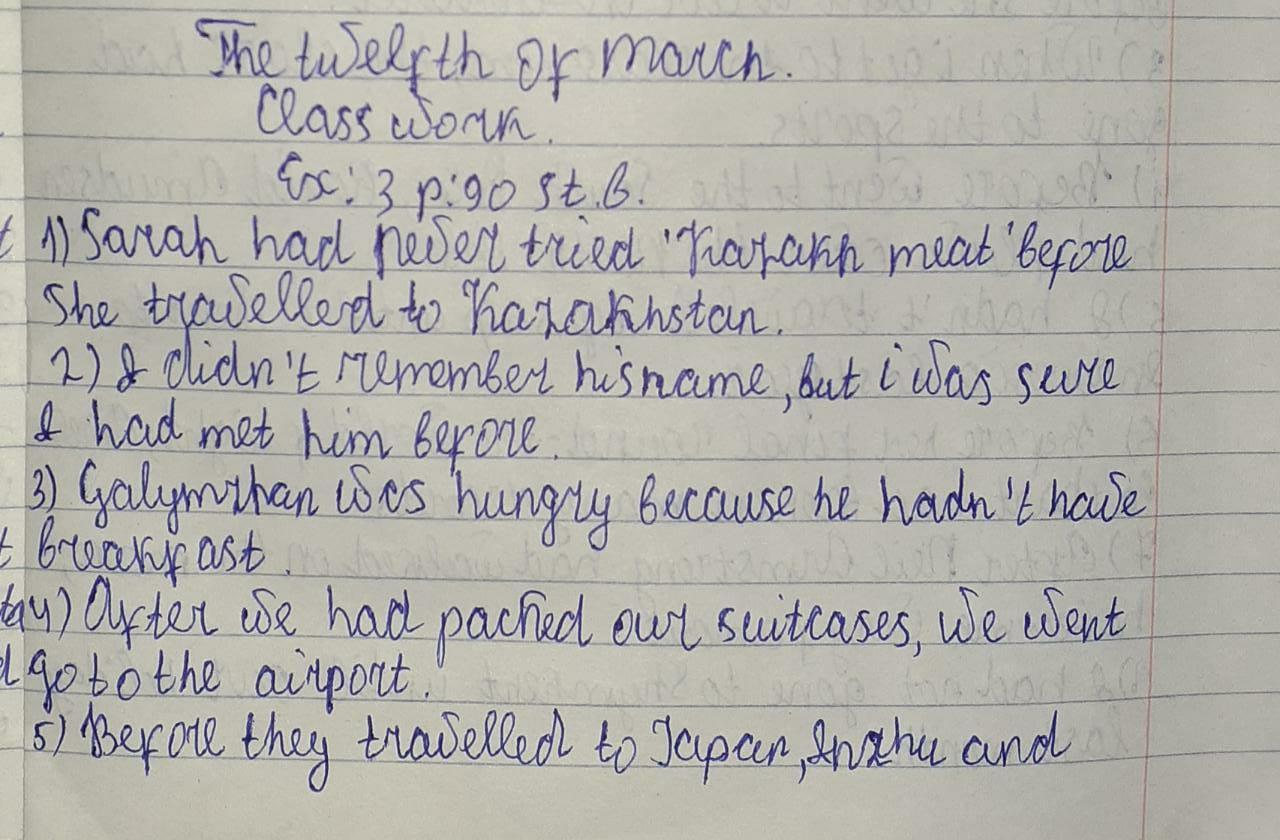 The twelfth of march.
Class work.
Ex: 3 p:90 St.B.
1) Sarah had never tried 'Kazakh meat' before
She travelled to Kazakhstan.
2) I didn't remember his name, but i was sure
I had met him before.
3) Galymzhan was hungry because he hadn't have
breakfast.
4) After we had packed our suitcases, we went
go to the airport.
5) Before they travelled to Japan, Inzhu and